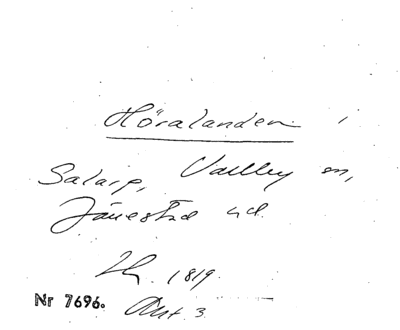 Höralanden i
Salarp, Vallby sn,
Jönestad hd.
1819.
Nr 7696. Akt 3.